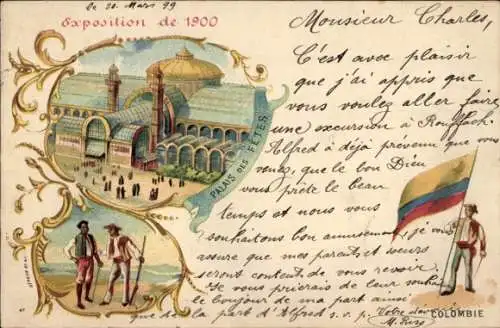 le 20 Mars 99
Exposition de 1900
PALAIS DES FÊTES
Monsieur Charles,
C'est avec plaisir
que j'ai appris que
vous voulez aller faire
une excursion à Rouffach.
Alfred à déjà prévenu que vous
venez, que le bon Dieu
vous prête le beau
temps et nous vous
souhaitons bon amusement, je vous
assure que mes parents et sœurs
seront contents de vous revoir.
Je vous prierais de leur souhaiter
le boujour de ma part ainsi
que de la part d'Alfred s. v. p. Votre
COLOMBIE